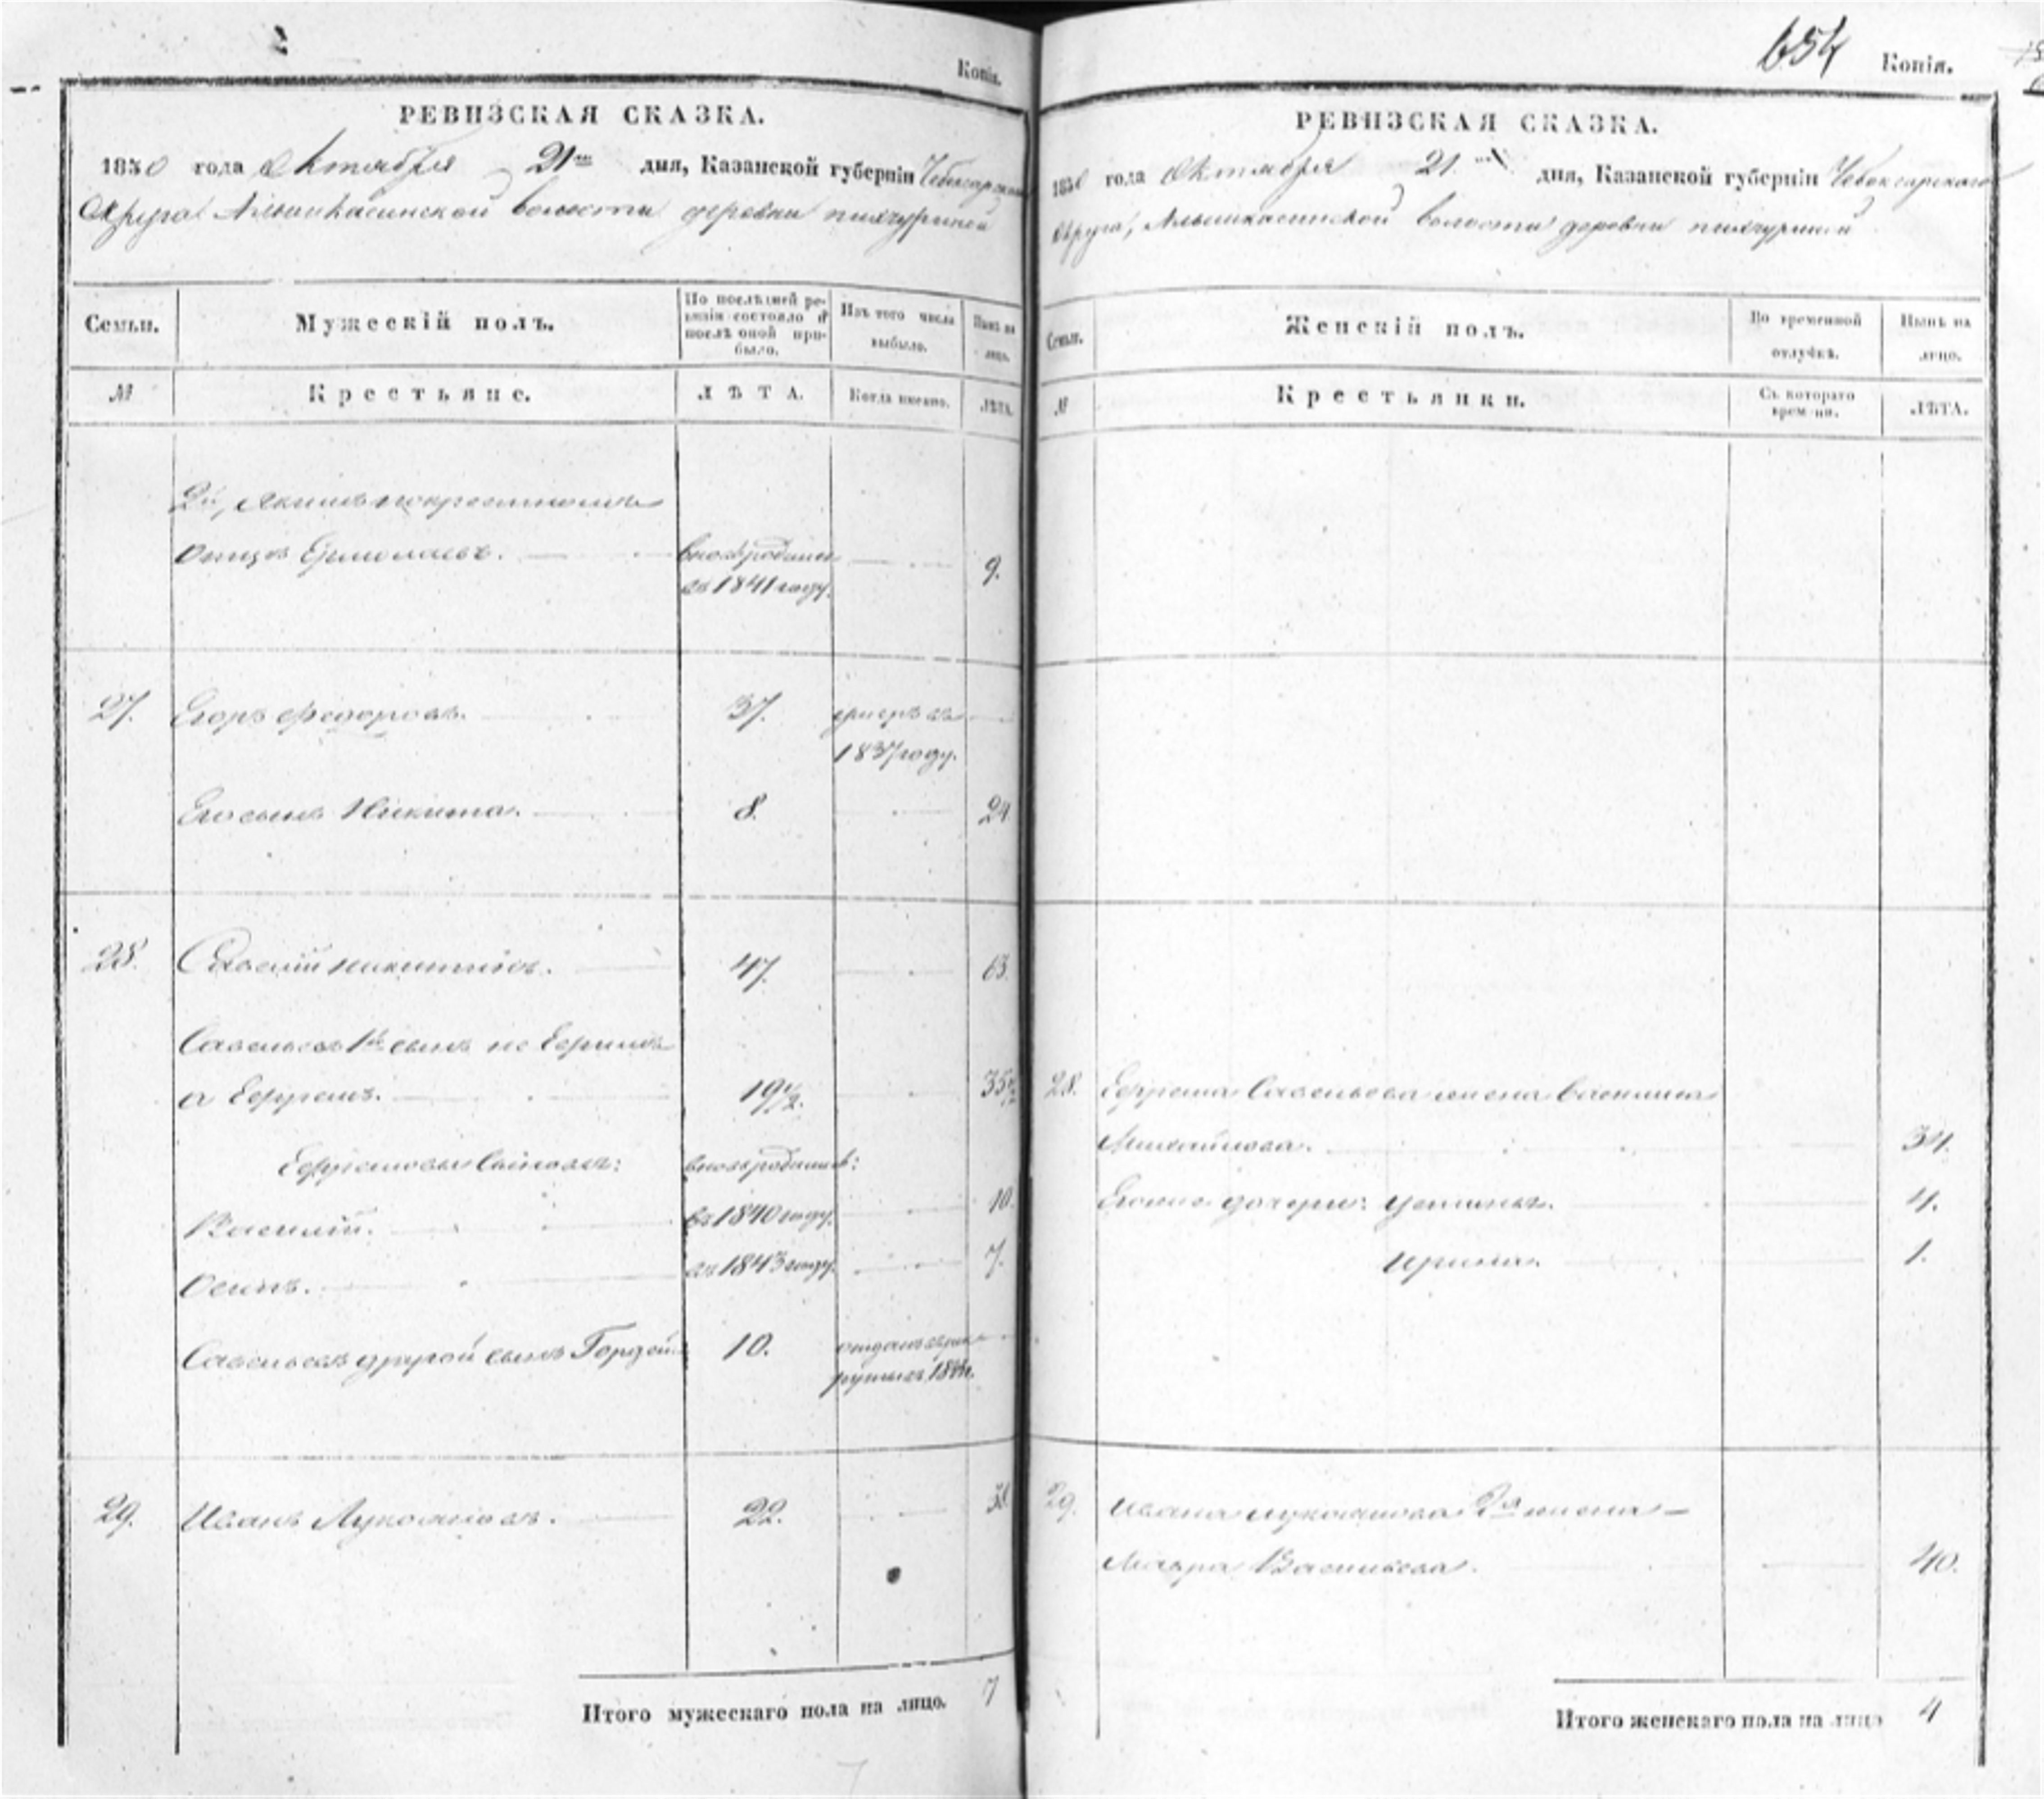 Копія.
РЕВИЗСКАЯ СКАЗКА.
1850 года Октября 21го дня, Казанской губерніи Чебоксарскаго
Округа Алышкасинской волости деревни
Семьи.
Мужескій полъ.
По послѣдней ре-
визіи состояло и
послѣ оной при-
было.
Изъ того числа
выбыло.
Нынѣ на
лицо.
№
Крестьяне.
ЛѢТА.
Когда именно.
ЛѢТА.
2й, Якимъ по крестному
отцу Ермолаевъ.
вновьрожденъ
въ 1841 году.
9.
27. Егоръ Федоровъ. 37. умеръ въ
1837 году.
Его сынъ Никита. 8. 24
28. Савелій Никитинъ. 47. 63.
Савельевъ 1й сынъ не Ефимъ
а Ефремъ. 19½. 35½
Ефремовы сыновья: вновьрожденны:
Василій. въ 1840 году. 10.
Осипъ. въ 1843 году. 7.
Савельевъ другой сынъ Гордей 10. отданъ въ рек
руты въ
29. Иванъ Лукояновъ. 22. 38
Итого мужескаго пола на лицо. 7
654
Копія.
РЕВИЗСКАЯ СКАЗКА.
1850 года Октября 21 дня, Казанской губерніи Чебоксарскаго
Округа, Алышкасинской волости деревни
Семьи.
Женскій полъ.
Во временной
отлучкѣ.
Нынѣ на
лицо.
№
Крестьянки.
Съ котораго
времени.
ЛѢТА.
28. Ефрема Савельева жена Василиса
Михайлова. 34.
Егоже дочери: Устинья. 4.
Ирина. 1.
29. Ивана Лукоянова 2я жена
Мавра Васильева. 40.
Итого женскаго пола на лицо 4